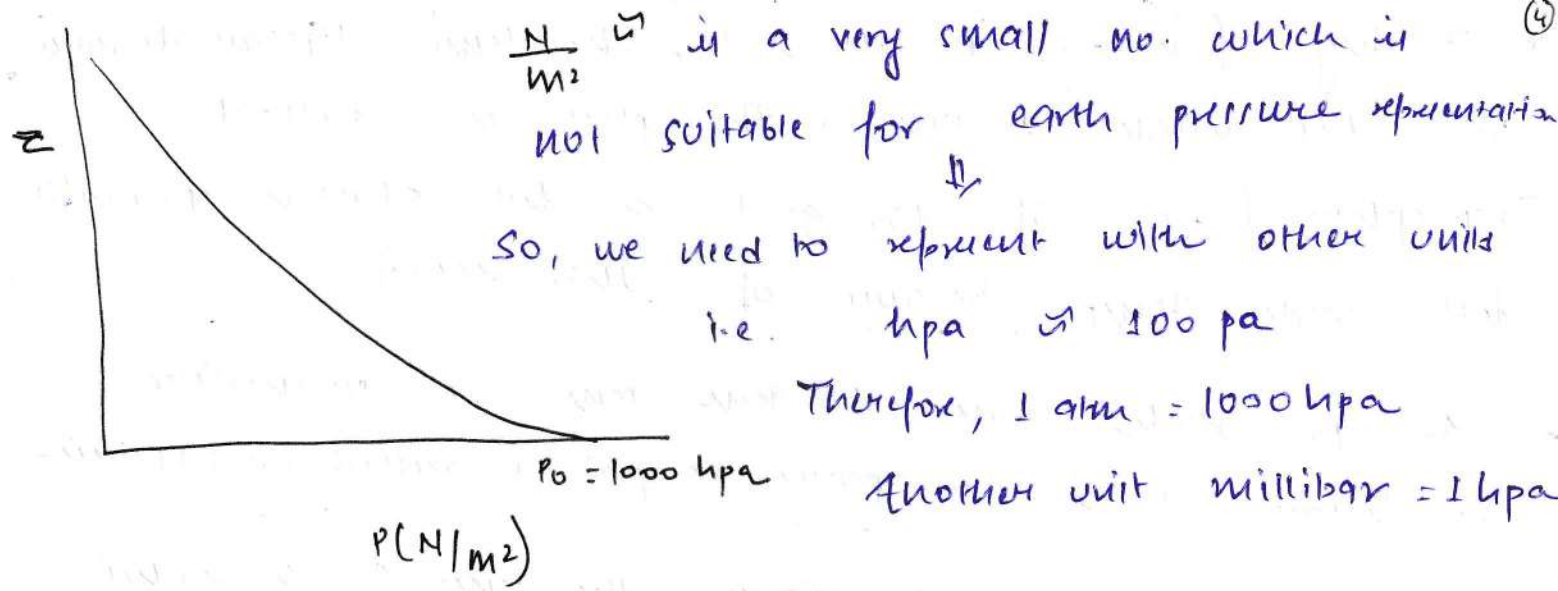 ④
N/m² ~> is a very small no. which is
not suitable for earth pressure representation
⇓
So, we need to represent with other units
i.e. hpa ~> 100 pa
Therefore, 1 atm = 1000 hpa
Another unit millibar = 1 hpa
Z
P₀ = 1000 hpa
P(N/m²)